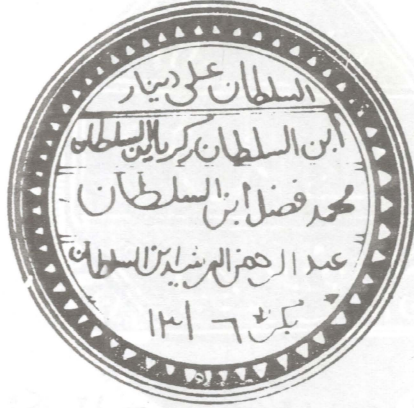 السلطان علي دينار
ابن السلطان زكريا بن السلطان
محمد فضل ابن السلطان
عبد الرحمن الرشيد ابن السلطان
بكر ١٣١٦